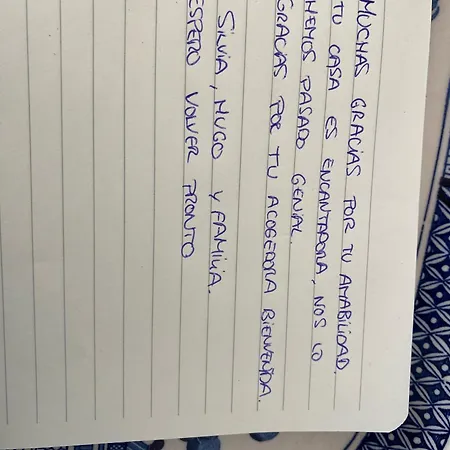 MUCHAS GRACIAS POR TU AMABILIDAD.
TU CASA ES ENCANTADORA, NOS LO
HEMOS PASADO GENIAL.
GRACIAS POR TU ACOGEDORA BIENVENIDA.
SILVIA, HUGO Y FAMILIA.
ESPERO VOLVER PRONTO